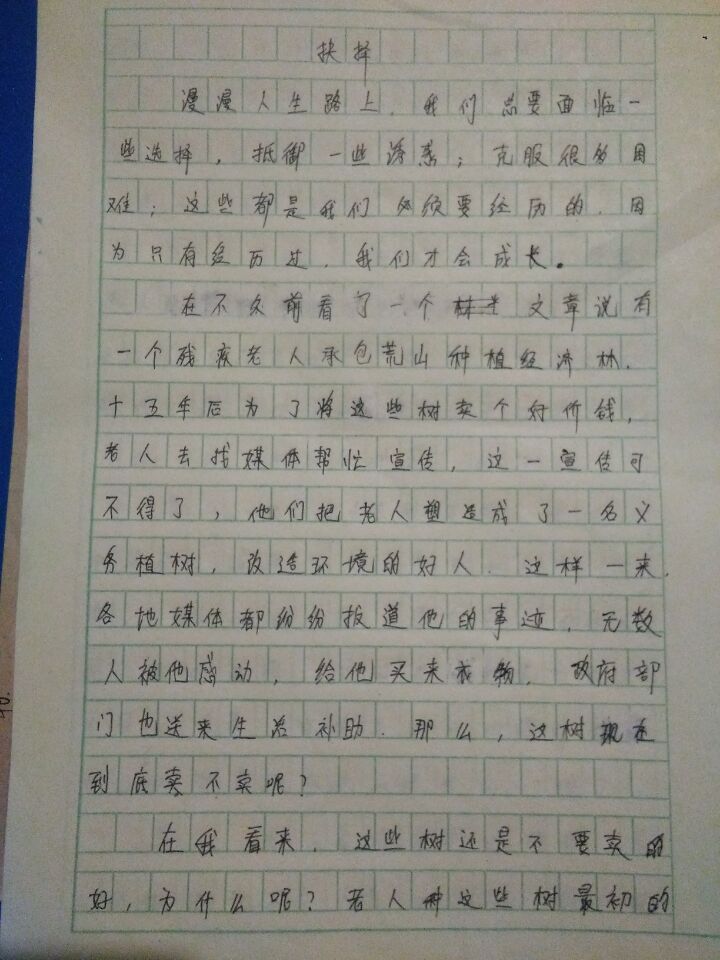 抉择
漫漫人生路上，我们总要面临一
些选择，抵御一些诱惑；克服很多困
难；这些都是我们必须要经历的，因
为只有经历过，我们才会成长。
在不久前看了一个文章说有
一个残疾老人承包荒山种植经济林，
十五年后为了将这些树卖个好价钱，
老人去找媒体帮忙宣传，这一宣传可
不得了，他们把老人塑造成了一名义
务植树，改造环境的好人．这样一来，
各地媒体都纷纷报道他的事迹，无数
人被他感动，给他买来衣物，政府部
门也送来生活补助．那么，这树现在
到底卖不卖呢？
在我看来，这些树还是不要卖的
好，为什么呢？老人种这些树最初的